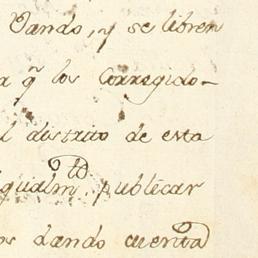 Vando, y se libren
a q̃ los Corregido-
l distrito de esta
igualm.te publicar
os dando cuenta